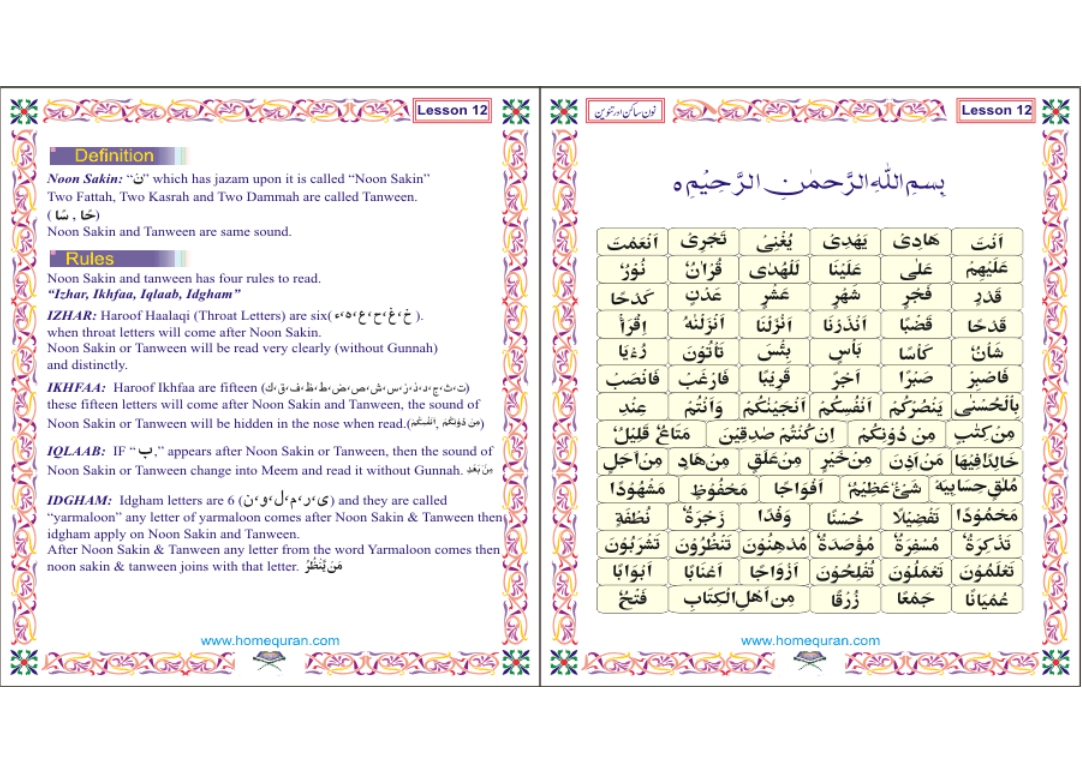 Lesson 12
Definition
Noon Sakin: “نْ” which has jazam upon it is called “Noon Sakin”
Two Fattah, Two Kasrah and Two Dammah are called Tanween.
( سًا , حًا)
Noon Sakin and Tanween are same sound.
Rules
Noon Sakin and tanween has four rules to read.
“Izhar, Ikhfaa, Iqlaab, Idgham”
IZHAR: Haroof Haalaqi (Throat Letters) are six( خ،غ،ح،ع،ہ،ء ).
when throat letters will come after Noon Sakin.
Noon Sakin or Tanween will be read very clearly (without Gunnah)
and distinctly.
IKHFAA: Haroof Ikhfaa are fifteen (ت،ث،ج،د،ذ،ز،س،ش،ص،ض،ط،ظ،ف،ق،ك)
these fifteen letters will come after Noon Sakin and Tanween, the sound of
Noon Sakin or Tanween will be hidden in the nose when read.(مِنْ دُوْنِكُمْ, اَنْفُسِكُمْ)
IQLAAB: IF “ ب,” appears after Noon Sakin or Tanween, then the sound of
Noon Sakin or Tanween change into Meem and read it without Gunnah. مِنْۢ بَعْدِ
IDGHAM: Idgham letters are 6 (ی،ر،م،ل،و،ن) and they are called
“yarmaloon” any letter of yarmaloon comes after Noon Sakin & Tanween then
idgham apply on Noon Sakin and Tanween.
After Noon Sakin & Tanween any letter from the word Yarmaloon comes then
noon sakin & tanween joins with that letter. مَنْ يَّنْظُرُ
www.homequran.com
نون ساکن اور تنوین
Lesson 12
بِسْمِ اللهِ الرَّحْمٰنِ الرَّحِيْمِ ه
اَنْتَ هَادِیْ يَهْدِیْ يُغْنِیْ تَجْرِیْ اَنْعَمْتَ
عَلَيْهِمْ عَلٰی عَلَيْنَا لَلْهُدٰی قُرْاٰنٌ نُوْرٌ
قَدْرِ فَجْرِ شَهْرٍ عَشْرٍ عَدْنٍ كَدْحًا
قَدْحًا قَضْبًا اَنْذَرْنَا اَنْزَلْنَا اَنْزَلْنٰهُ اِقْرَاْ
شَاْنٌ كَاْسًا بَاْسٍ بِئْسَ تَاْتُوْنَ رُءْيَا
فَاصْبِرْ صَبْرًا اَجْرٌ قَرِيْبًا فَارْغَبْ فَانْصَبْ
بِالْحُسْنٰی يَنْصُرْكُمْ اَنْفُسِكُمْ اَنْجَيْنٰكُمْ وَاَنْتُمْ عِنْدِ
مِنْ كِتٰبٍ مِنْ دُوْنِكُمْ اِنْ كُنْتُمْ صٰدِقِيْنَ مَتَاعٌ قَلِيْلٌ
خَالِدًافِيْهَا مَنْ اَذِنَ مِنْ خَيْرٍ مِنْ عَلَقٍ مِنْ هَادٍ مِنْ اَجَلٍ
مُلٰقٍ حِسَابِيَهْ شَیْءٌ عَظِيْمٌ اَفْوَاجًا مَحْفُوْظٍ مَشْهُوْدًا
مَحْمُوْدًا تَفْضِيْلًا حُسْنًا وَفْدًا زَجْرَةٌ نُطْفَةٍ
تَذْكِرَةٌ مُسْفِرَةٌ مُؤْصَدَةٌ مُدْهِنُوْنَ تَنْظُرُوْنَ تَشْرَبُوْنَ
تَعْلَمُوْنَ تَعْمَلُوْنَ تُفْلِحُوْنَ اَزْوَاجًا اَعْنَابًا اَبْوَابًا
عُمْيَانًا جَمْعًا زُرْقًا مِنْ اَهْلِ الْكِتَابِ فَتْحٌ
www.homequran.com